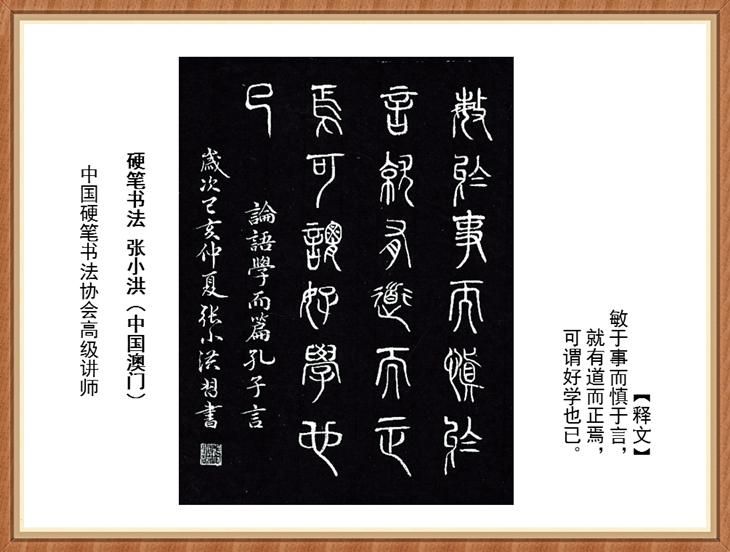 【释文】
敏于事而慎于言，
就有道而正焉，
可谓好学也已。
敏於事而慎於
言就有道而正
焉可謂好學也
已
論語學而篇孔子言
歲次己亥仲夏张小洪書
硬笔书法 张小洪（中国澳门）
中国硬笔书法协会高级讲师